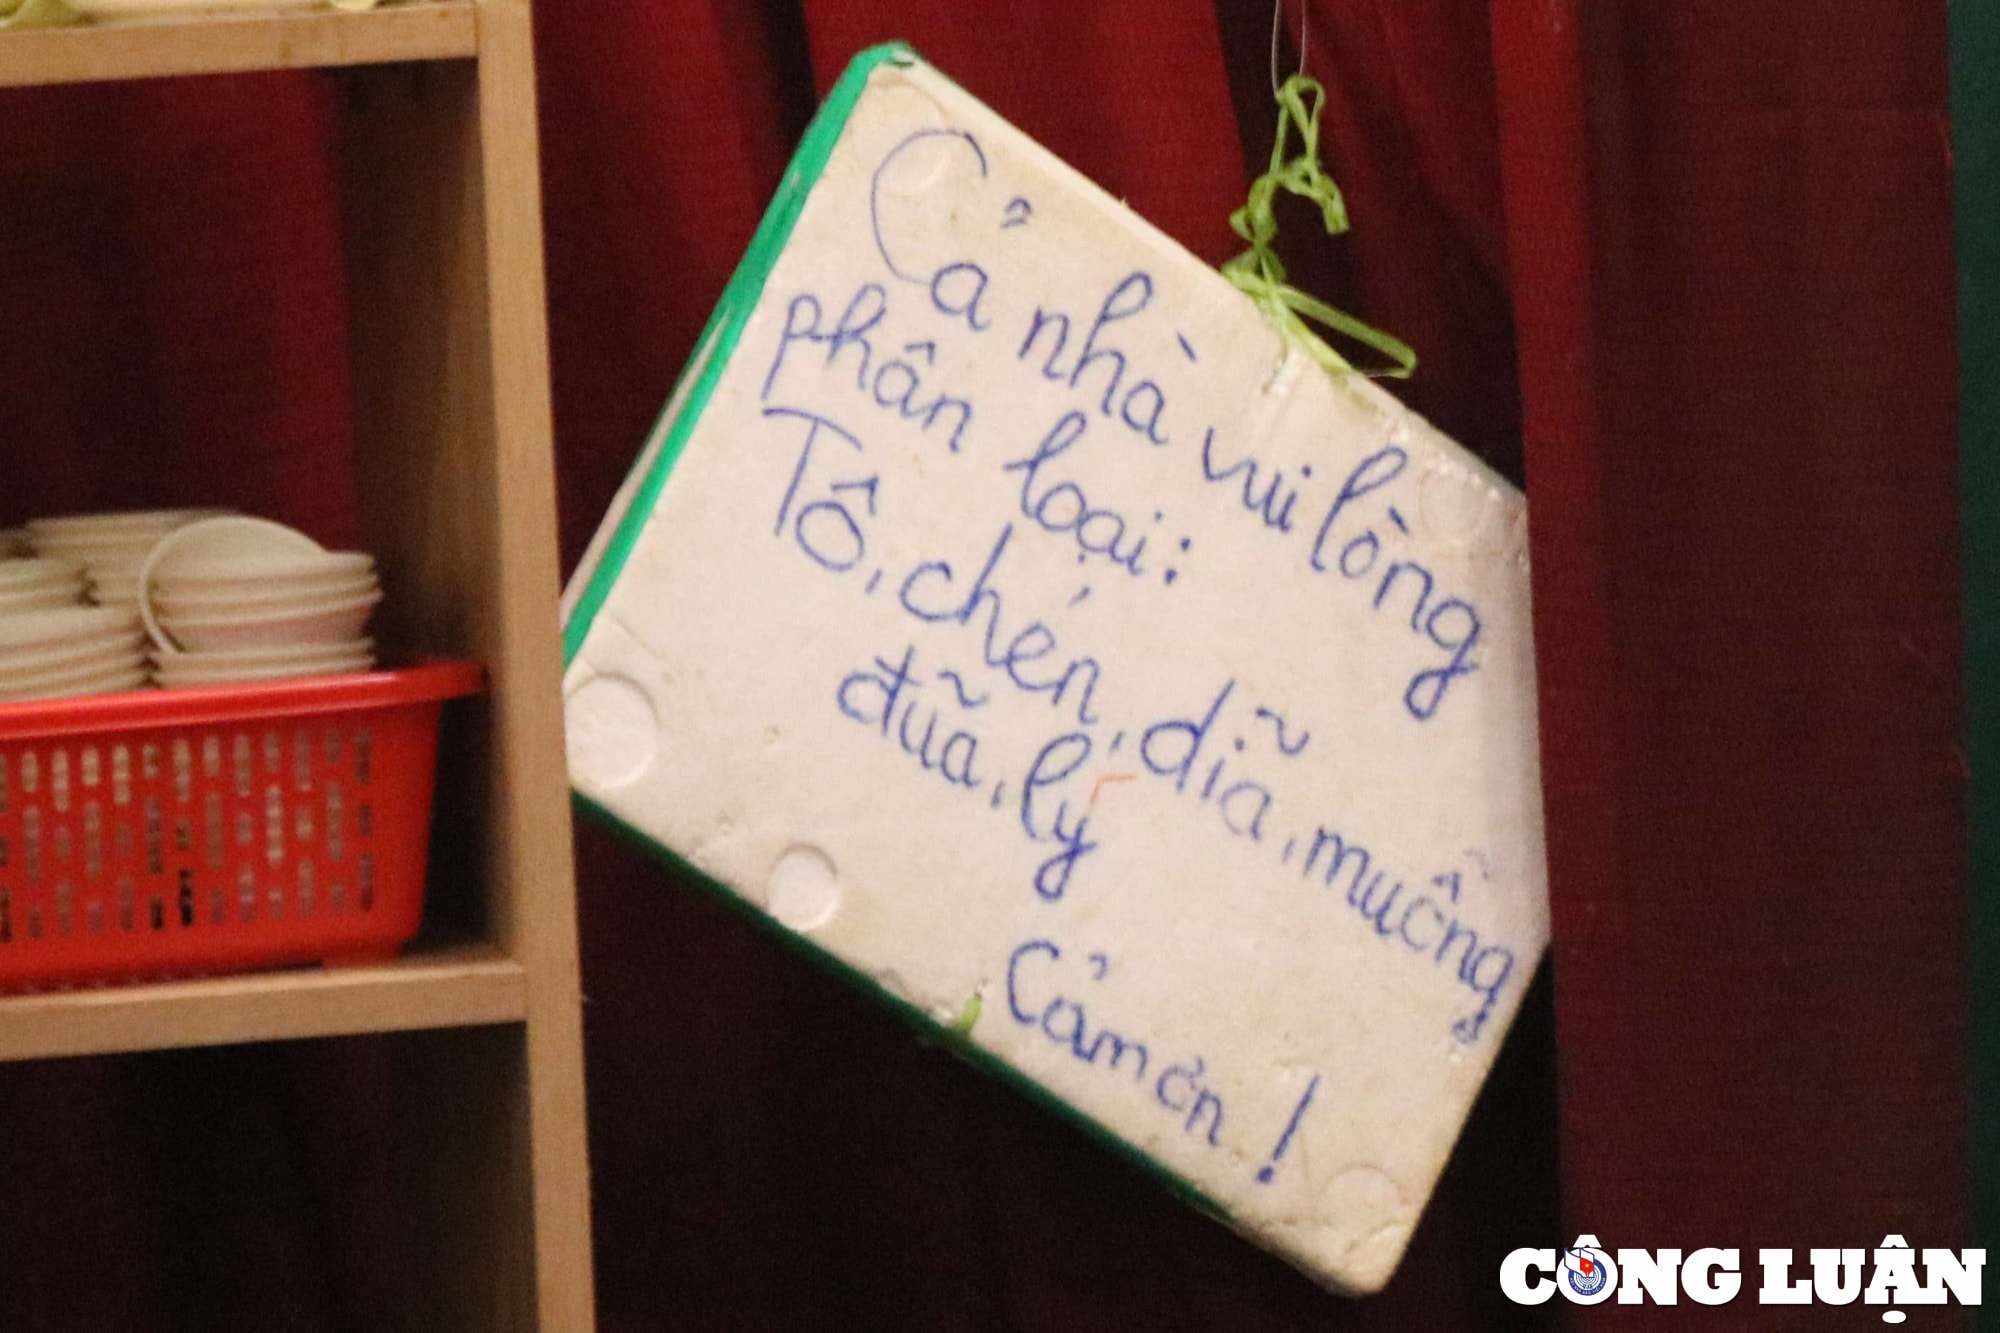 Cả nhà vui lòng
phân loại:
Tô, chén, dĩa, muỗng
đũa, ly
Cảm ơn!
CÔNG LUẬN